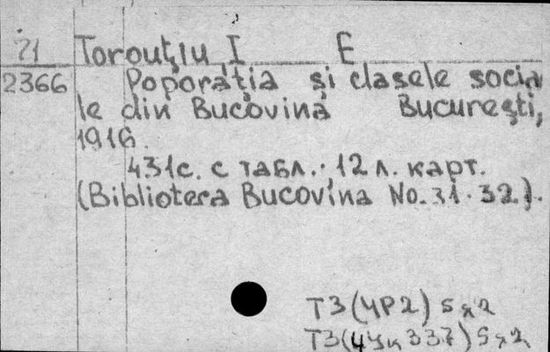 21 Toroutịu I E
2366 Poporația și clasele socia
le din Bucovina București,
1916.
431c. с табл.; 12 л. карт.
(Biblioteca Bucovina No. 31-32).
T3(4P2) 5я2
T3(4Ук337) 5я2